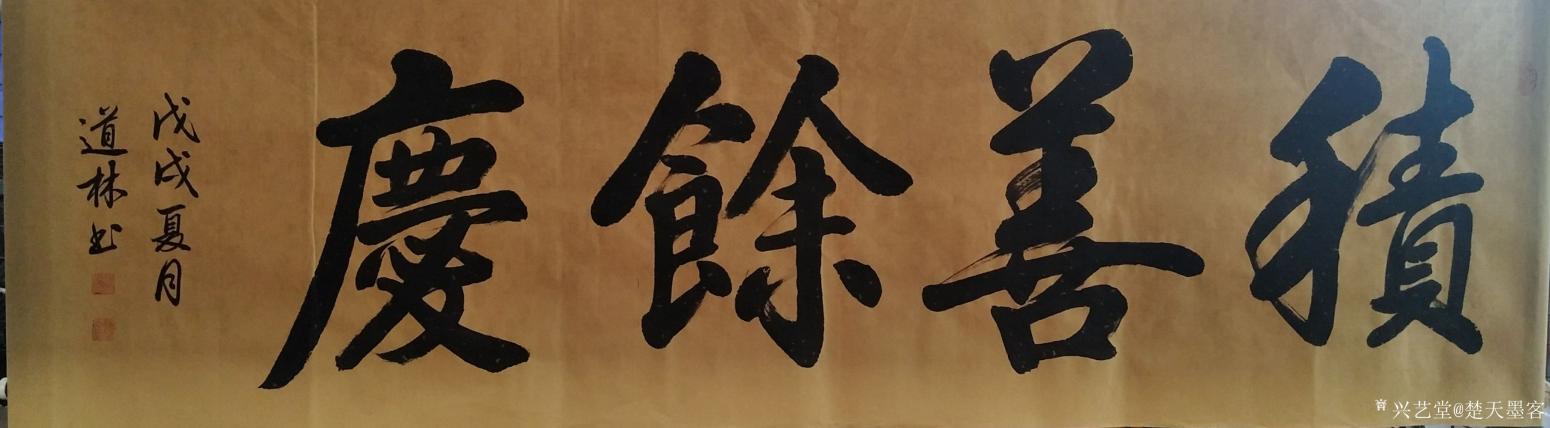 積善餘慶
戊戌夏月
道林书
兴艺堂@楚天墨客